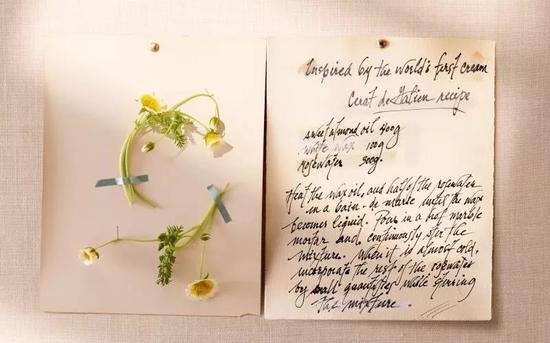 Inspired by the world's first cream
Cerat de Galien recipe
sweet almond oil 400g
white wax 100g
rosewater 300g.
Heat the wax, oil, and half of the rosewater
in a bain-de marble until the wax
becomes liquid. Pour in a hot marble
mortar and continuously stir the
mixture. When it is almost cold,
incorporate the rest of the rosewater
by small quantities while stirring
the mixture.